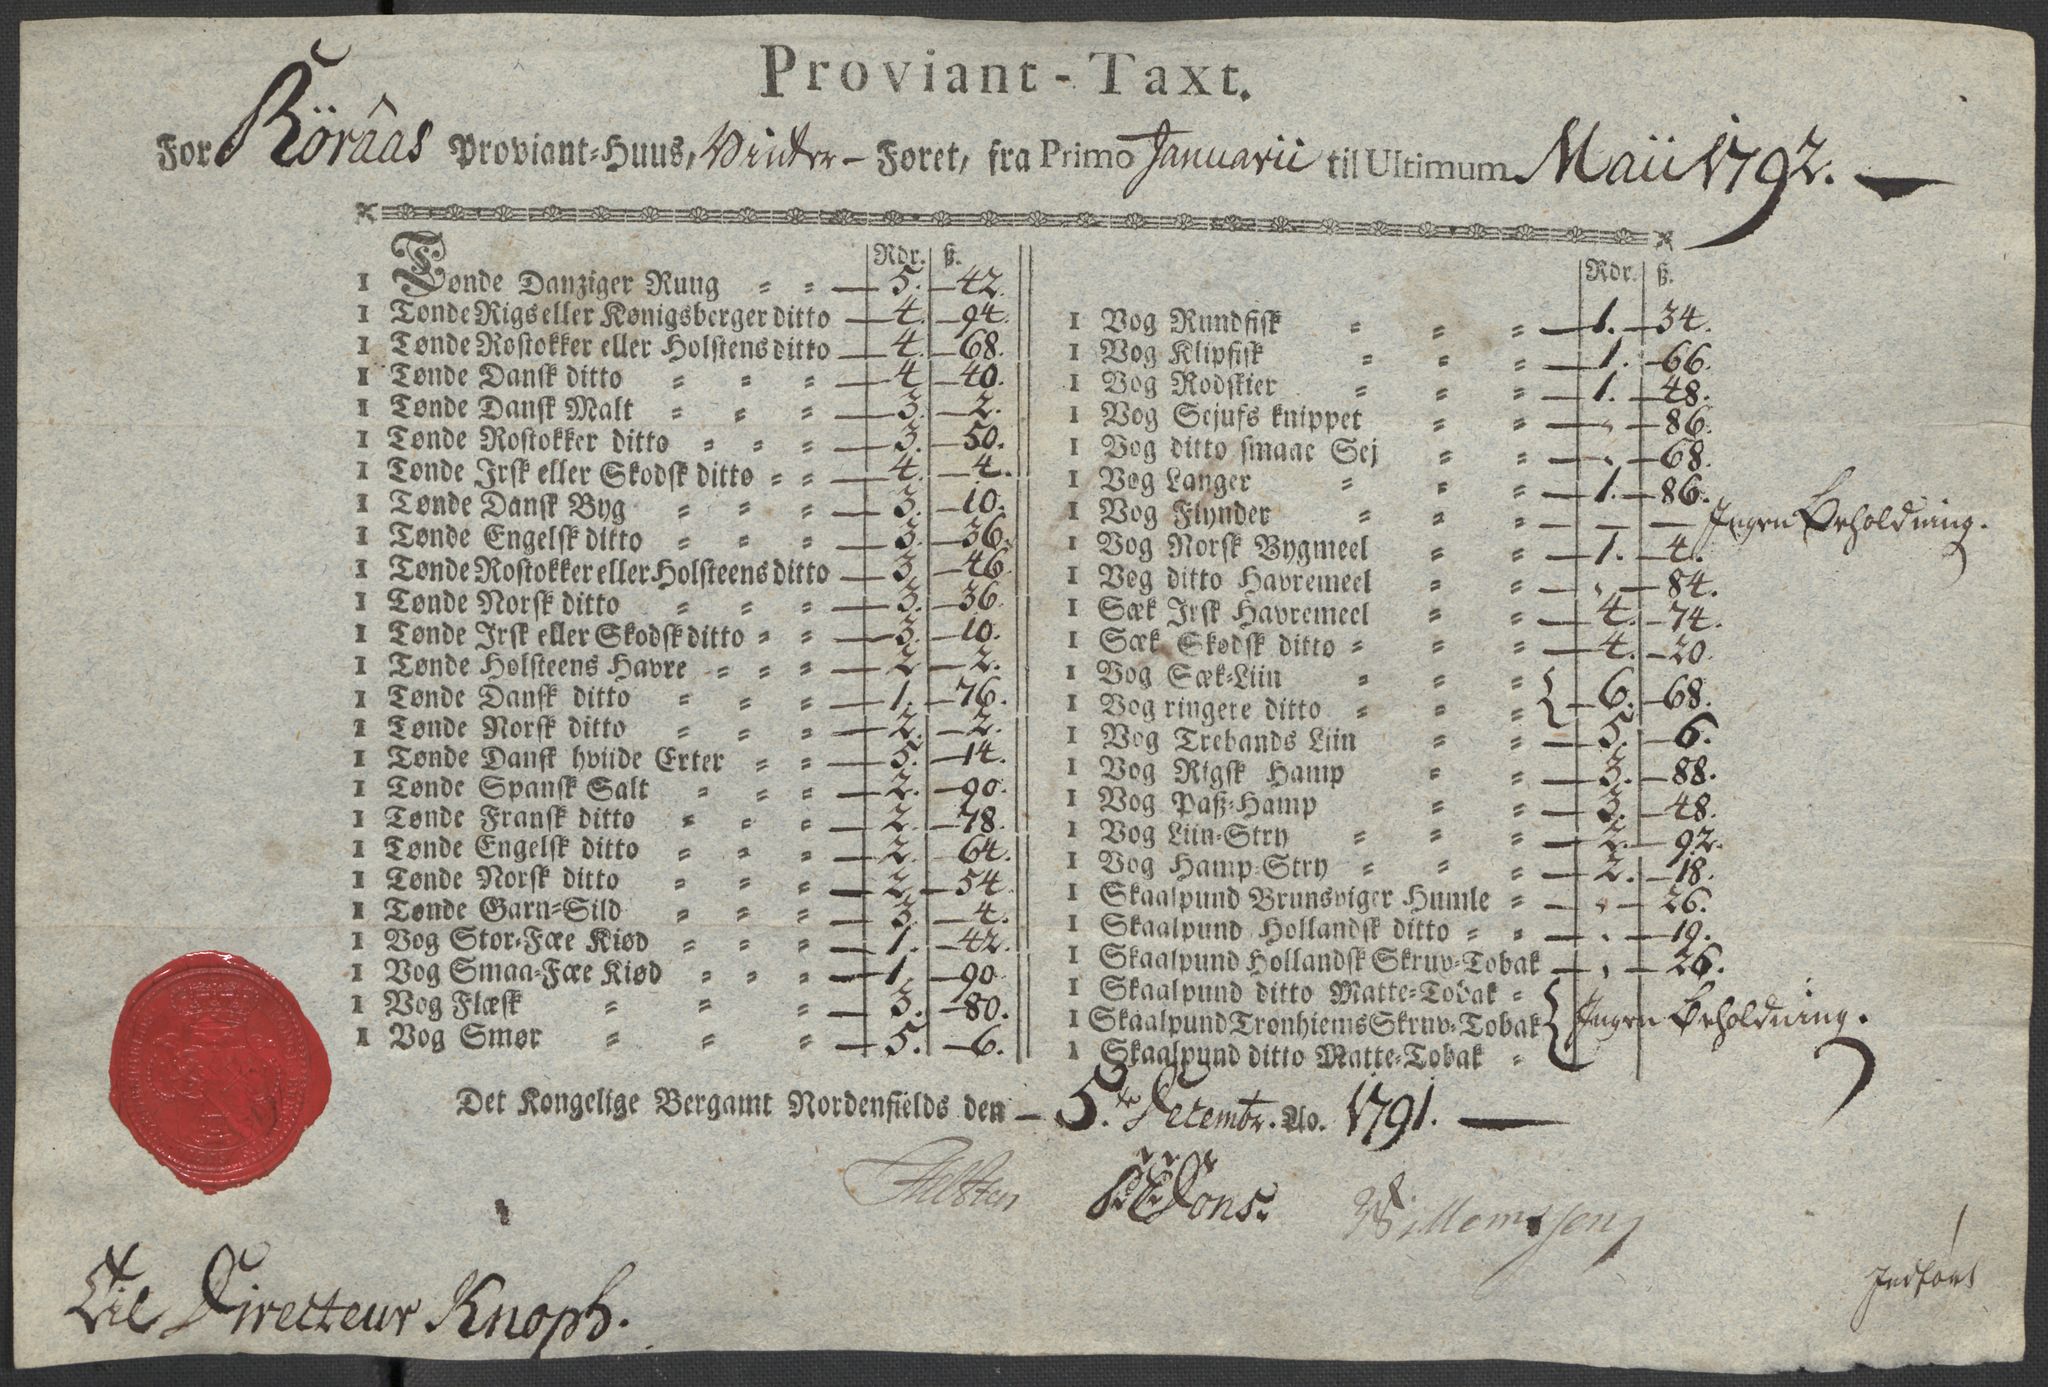 Proviant-Taxt.
For Rörâas Proviant-Huus, Vinter- Føret, fra Primo Januarii til Ultimum Maii 1792.
Rdr. ß.
1 Tønde Danziger Rung 5. 42.
1 Tønde Rigs eller Kønigsberger ditto 4. 94.
1 Tønde Rostokker eller Holstens ditto 4. 68.
1 Tønde Dansk ditto 4 40.
1 Tønde Dansk Malt 3. 2.
1 Tønde Rostokker ditto 3. 50.
1 Tønde Irsk eller Skodsk ditto 4. 4.
1 Tønde Dansk Byg 3. 10.
1 Tønde Engelsk ditto 3. 36.
1 Tønde Rostokker eller Holsteens ditto 3. 46.
1 Tønde Norsk ditto 3. 36.
1 Tønde Irsk eller Skodsk ditto 3. 10.
1 Tønde Holsteens Havre 2 2.
1 Tønde Dansk ditto 1. 76.
1 Tønde Norsk ditto 2. 2.
1 Tønde Dansk hviide Erter 5. 14.
1 Tønde Spansk Salt 2. 90.
1 Tønde Fransk ditto 2. 78.
1 Tønde Engelsk ditto 2. 64.
1 Tønde Norsk ditto 2. 54.
1 Tønde Garn-Sild 3. 4.
1 Vog Stor-Fæe Kiød 1. 42.
1 Vog Smaa-Fæe Kiød 1. 90.
1 Vog Flæsk 3. 80.
1 Vog Smør 5. 6.
Rdr. ß.
1 Vog Rundfisk 1. 34.
1 Vog Klipfisk 1. 66.
1 Vog Rodskier 1. 48.
1 Vog Sejufs knippet " 86.
1 Vog ditto smaae Sej " 68.
1 Vog Langer 1. 86.
1 Vog Flynder — — Ingen Beholdning.
1 Vog Norsk Bygmeel 1. 4.
1 Vog ditto Havremeel " 84.
1 Sæk Irsk Havremeel 4. 74.
1 Sæk Skodsk ditto 4. 20.
1 Vog Sæk-Liin { 6. 68.
1 Vog ringere ditto
1 Vog Trebands Liin 5. 6.
1 Vog Rigsk Hamp 3. 88.
1 Vog Paß-Hamp 3. 48.
1 Vog Liin-Stry 2. 92.
1 Vog Hamp-Stry 2. 18.
1 Skaalpund Brunsviger Humle " 26.
1 Skaalpund Hollandsk ditto " 19.
1 Skaalpund Hollandsk Skruv-Tobak " 26.
1 Skaalpund ditto Matte-Tobak
1 Skaalpund Tronhiems Skruv-Tobak { Ingen Beholdning.
1 Skaalpund ditto Matte-Tobak
Det Kongelige Bergamt Nordenfields den 5te Decembr. Ao. 1791.
Dons.
Willemssen
Indført
Til Directeur Knoph.